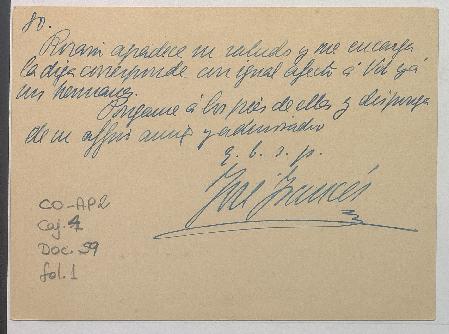 80.
Rosario agradece su saludo y me encarga
la diga corresponde con igual afecto á Vd y á
sus hermanas.
Póngame á los piés de ellas y disponga
de su affmo amigo y admirador
q. b. s. p.
José Francés
CO-AP2
Caj. 4
Doc. 59
fol. 1